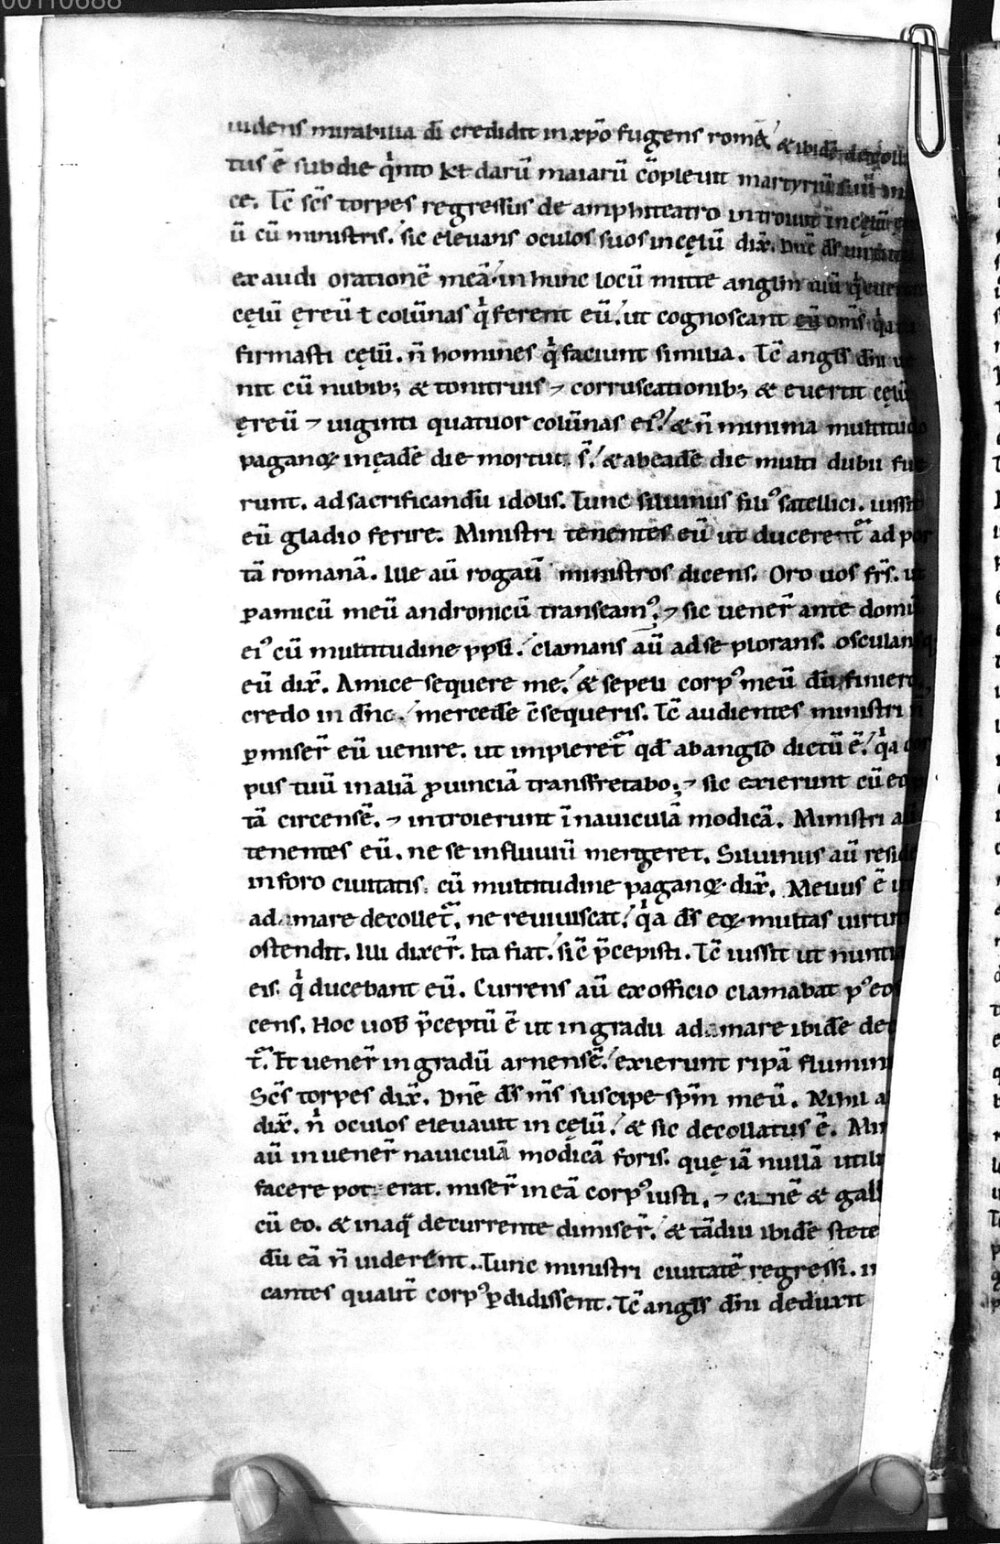 00110688
uidens mirabilia dī credidit in xp̄o fugens romā & ibidē decolla
tus ē sub die qͥnto kł darū maiarū c̄opleuit martyriū suū in
ce. Tc̄ sc̄s torpes regressus de amphiteatro introiuit in cęlū
ū cū ministris. sic eleuans oculos suos in cęlū dix̄. Dn̄e ds̄
exaudi orationē meā. in hunc locū mitte anglm̄ tuū qͥ euer
cęlū ęreū ł colūnas qͥ ferent eū. ut cognoscant eū om̄s qͥa tu
firmasti cęlū. n̄ homines qͥ faciunt similia. Tc̄ angłs dn̄i ue
nit cū nubibꝫ & tonitruis ⁊ corruscationibꝫ & euertit cęlū
ęreū ⁊ uiginti quatuor colūnas eiꝰ. & n̄ minima multitudo
paganoꝝ in ęadē die mortui s̄. & ab eadē die multi dubii fue
runt. ad sacrificandū idolis. Tunc siluinus filiꝰ satellici. iussit
eū gladio ferire. Ministri tenentes eū ut ducerent̄ ad por
tā romanā. Ille aū rogauͭ ministros dicens. Oro uos fr̄s. ut
ꝑ amicū meū andronicū transeamꝰ. ⁊ sic uener̄ ante domū
eiꝰ cū multitudine ppłi. clamans aū ad se plorans. osculansqꝫ
eū dix̄. Amice sequere me. & sepeli corpꝰ meū dū finiero.
credo in dn̄o. mercedē c̄sequeris. Tc̄ audientes ministri n̄
ꝑmiser̄ eū uenire. ut impleret̄ qd̄ ab anglo dictū ē. qͥa cor
pus tuū in aliā ꝓuinciā transfretabo. ⁊ sic exierunt cū eo por
tā circensē. ⁊ introierunt ī nauiculā modicā. Ministri aū
tenentes eū. ne se in fluuiū mergeret. Siluinus aū resid
in foro ciuitatis. cū multitudine paganoꝝ. dix̄. Melius ē ut
ad mare decollet̄. ne reuiuiscat. qͥa ds̄ eoꝝ multas uirtut
ostendit. Illi dixer̄. Ita fiat. sic̄ p̄cepisti. Tc̄ iussit ut nuntia
eis. qͥ ducebant eū. Currens aū ex officio clamabat pꝰ eos
cens. Hoc uob̄ p̄ceptū ē ut in gradu ad mare ibidē dec
t̄. Et uener̄ in gradū arnensē. exierunt ripā flumini
Sc̄s torpes dix̄. Dn̄e ds̄ m̄s suscipe sp̄m meū. Nihil a
dix̄. n̄ oculos eleuauit in cęlū. & sic decollatus ē. Min
aū inuener̄ nauiculā modicā foris. quę iā nullā utili
facere pot erat. miser̄ in eā corpꝰ iusti. ⁊ canē & gall
cū eo. & in aqͣ decurrente dimiser̄. & tādiu ibidē stete
dū eā n̄ uiderent. Tunc ministri ciuitatē regressi.
cantes qualit̄ corpꝰ ꝑdidissent. Tc̄ angłs dn̄i deduxit